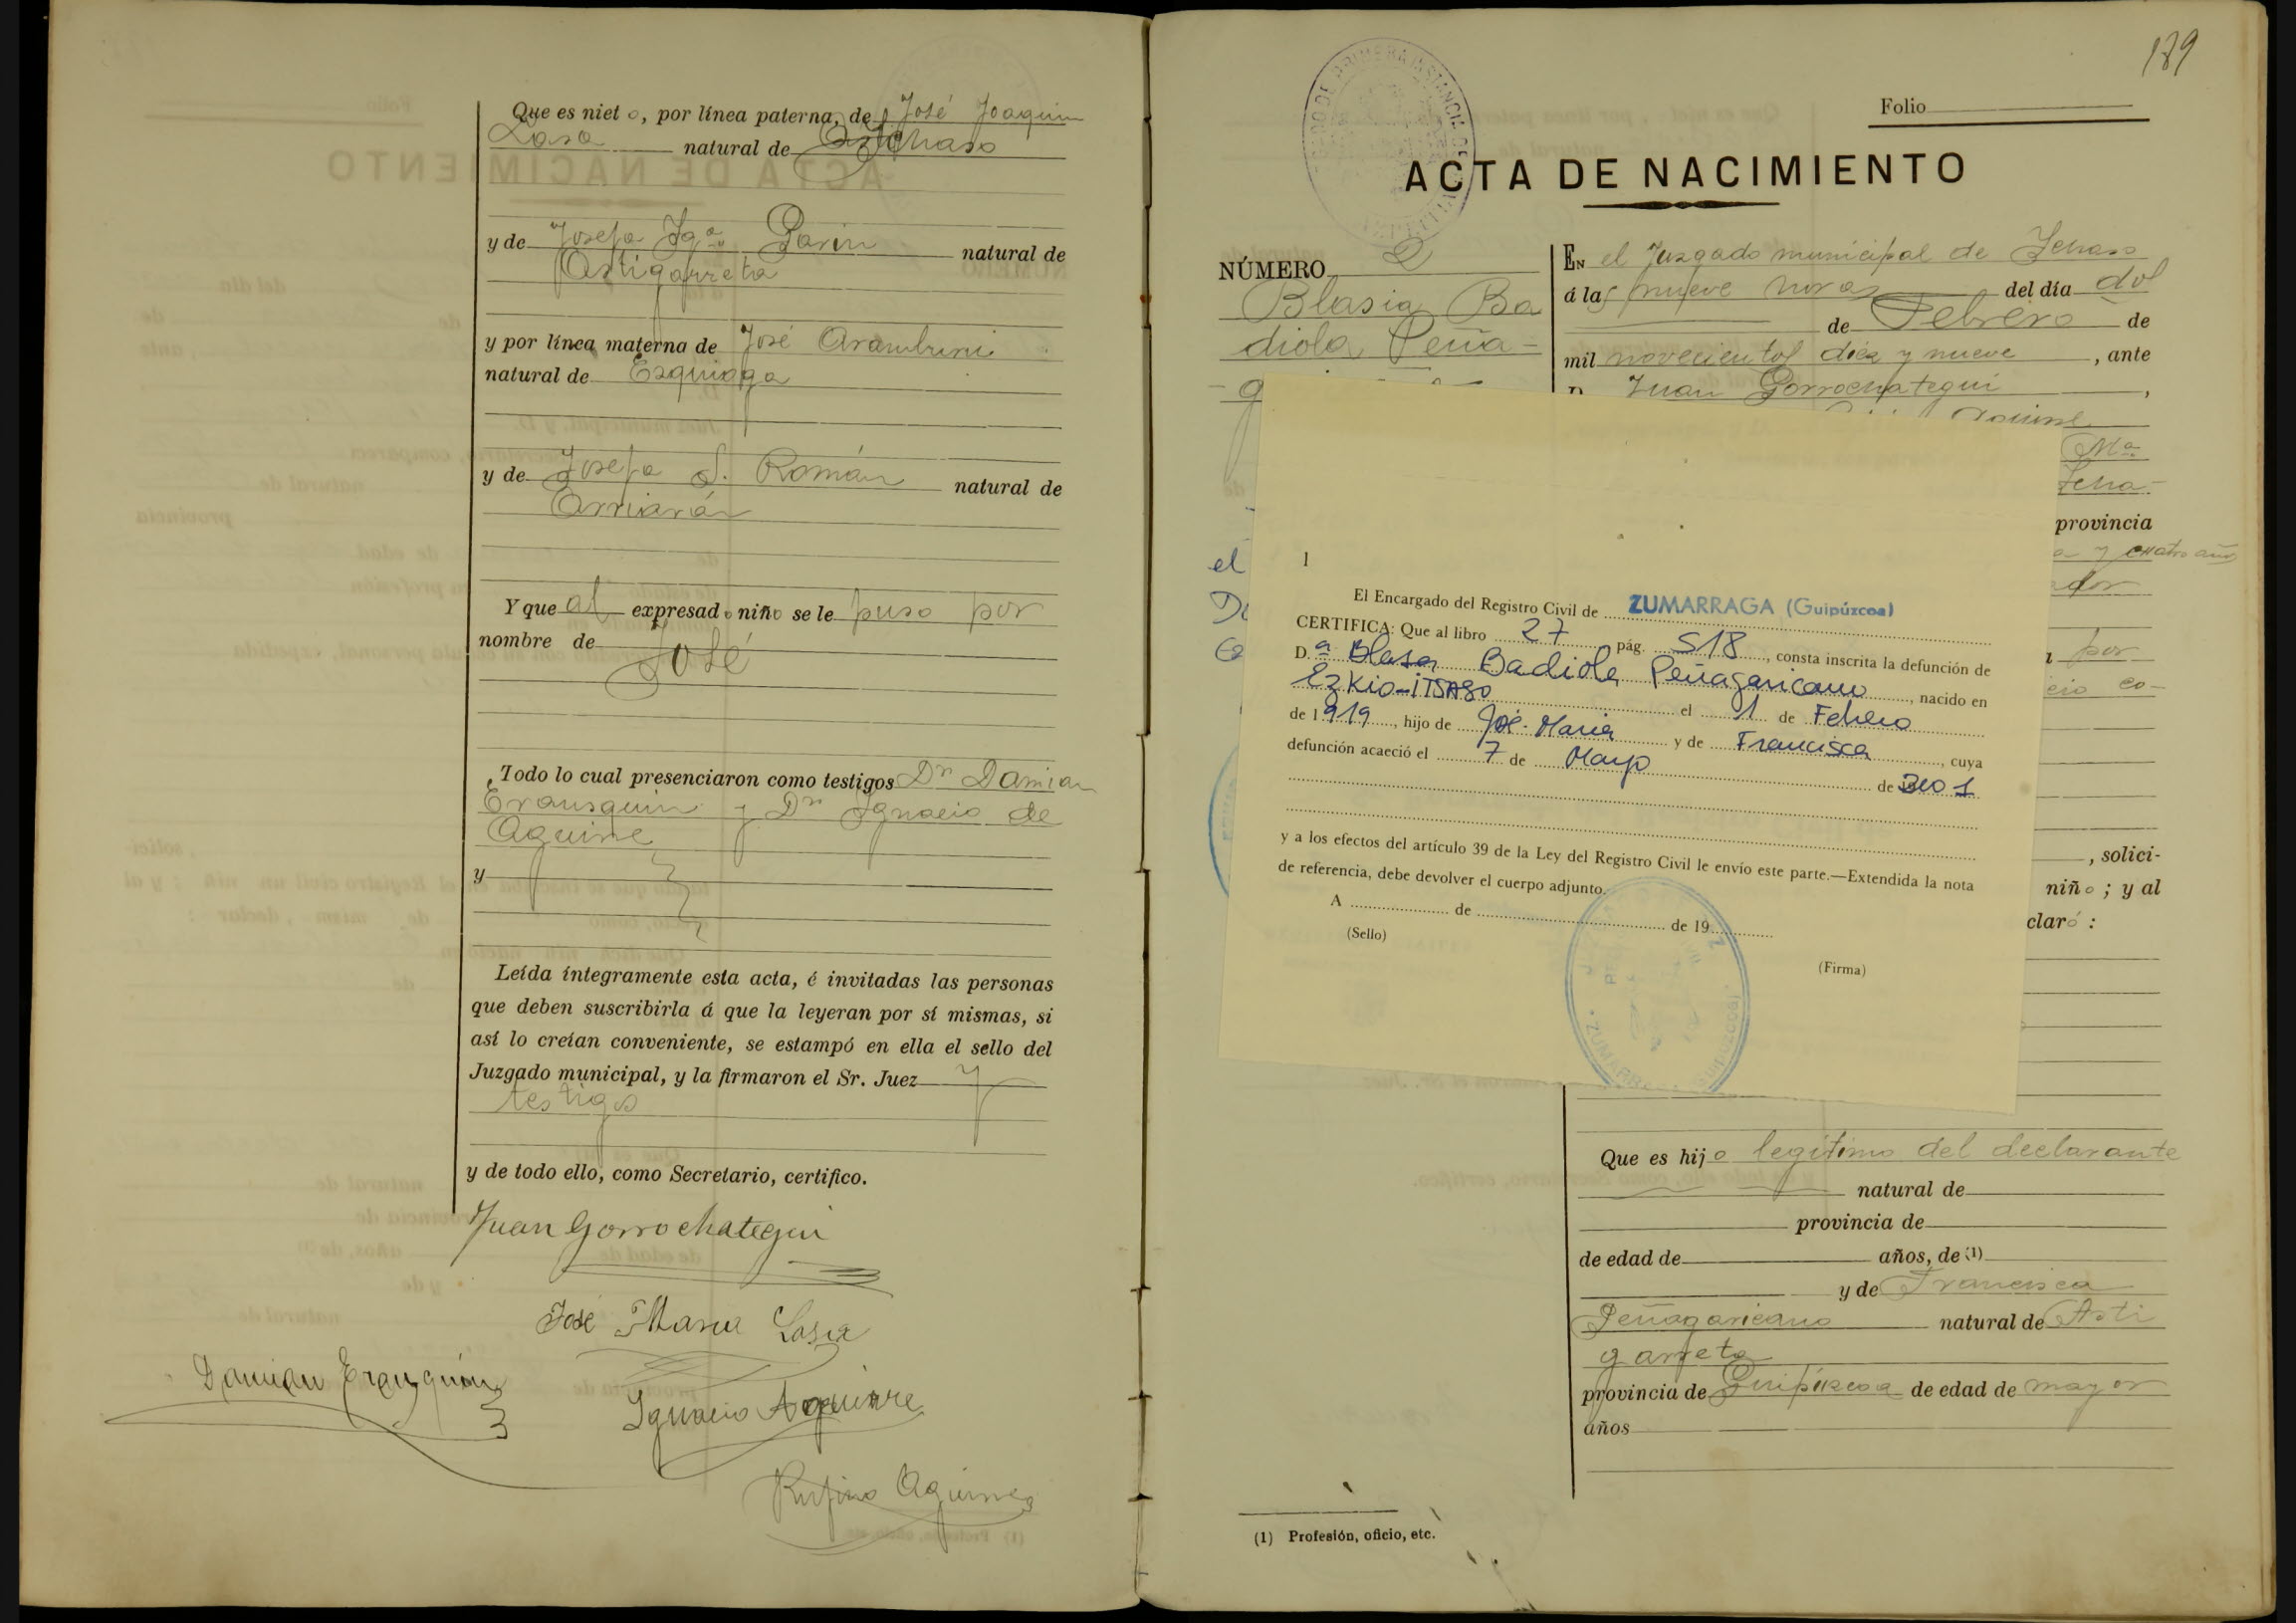 Que es nieto, por línea paterna, de José Joaquin
Lasa natural de Ichaso
y de Josefa Igª Garin natural de
Astigarreta
y por línea materna de José Aramburu
natural de Ezquiaga
y de Josefa S. Román natural de
Arriarán
Y que al expresado niño se le puso por
nombre de José
Todo lo cual presenciaron como testigos Dn Damian
Erausquin y Dn Ignacio de
Aguirre
y
Leída íntegramente esta acta, é invitadas las personas
que deben suscribirla á que la leyeran por sí mismas, si
así lo creían conveniente, se estampó en ella el sello del
Juzgado municipal, y la firmaron el Sr. Juez y
testigos
y de todo ello, como Secretario, certifico.
Juan Gorrochategui
José Maria Lasa
Damian Erausquin
Ignacio Aguirre
Rufino Aguirre
189
Folio
ACTA DE NACIMIENTO
NÚMERO 2
Blasia Ba
diola Peña-
g
EN el Juzgado municipal de Ichaso
á las nueve horas del día dos
de Febrero de
mil novecientos diez y nueve, ante
D. Juan Gorrochategui,
Aguirre
Mª
Icha-
provincia
a y cuatro años
ador
por
cio co-
, solici-
niño; y al
claró:
el
1
El Encargado del Registro Civil de ZUMARRAGA (Guipúzcoa)
CERTIFICA: Que al libro 27 pág. 518, consta inscrita la defunción de
D.ª Blasa Badiola Peñagaricano, nacido en
Ezkio-iTSASO el 1 de Febrero
de 1919, hijo de José-Maria y de Francisca, cuya
defunción acaeció el 7 de Mayo de 2001
y a los efectos del artículo 39 de la Ley del Registro Civil le envío este parte.—Extendida la nota
de referencia, debe devolver el cuerpo adjunto.
A de de 19
(Sello)
(Firma)
Que es hijo legítimo del declarante
natural de
provincia de
de edad de años, de (1)
y de Francisca
Peñagaricano natural de Asti
garreta
provincia de Guipúzcoa de edad de mayor
años
(1) Profesión, oficio, etc.